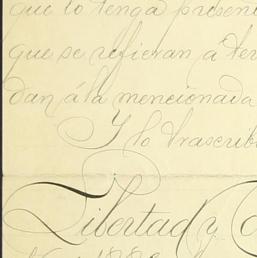 que lo tenga presen
que se refieran á ter
dan á la mencionada
Y lo trascrib
Libertad y C